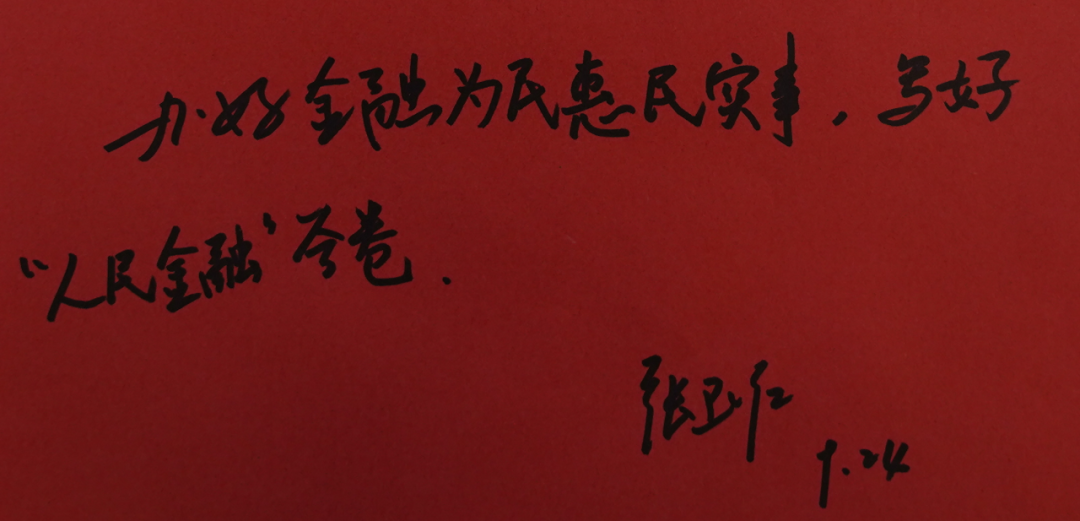 办好金融为民惠民实事，写好
“人民金融”答卷.
张卫仁
9.24